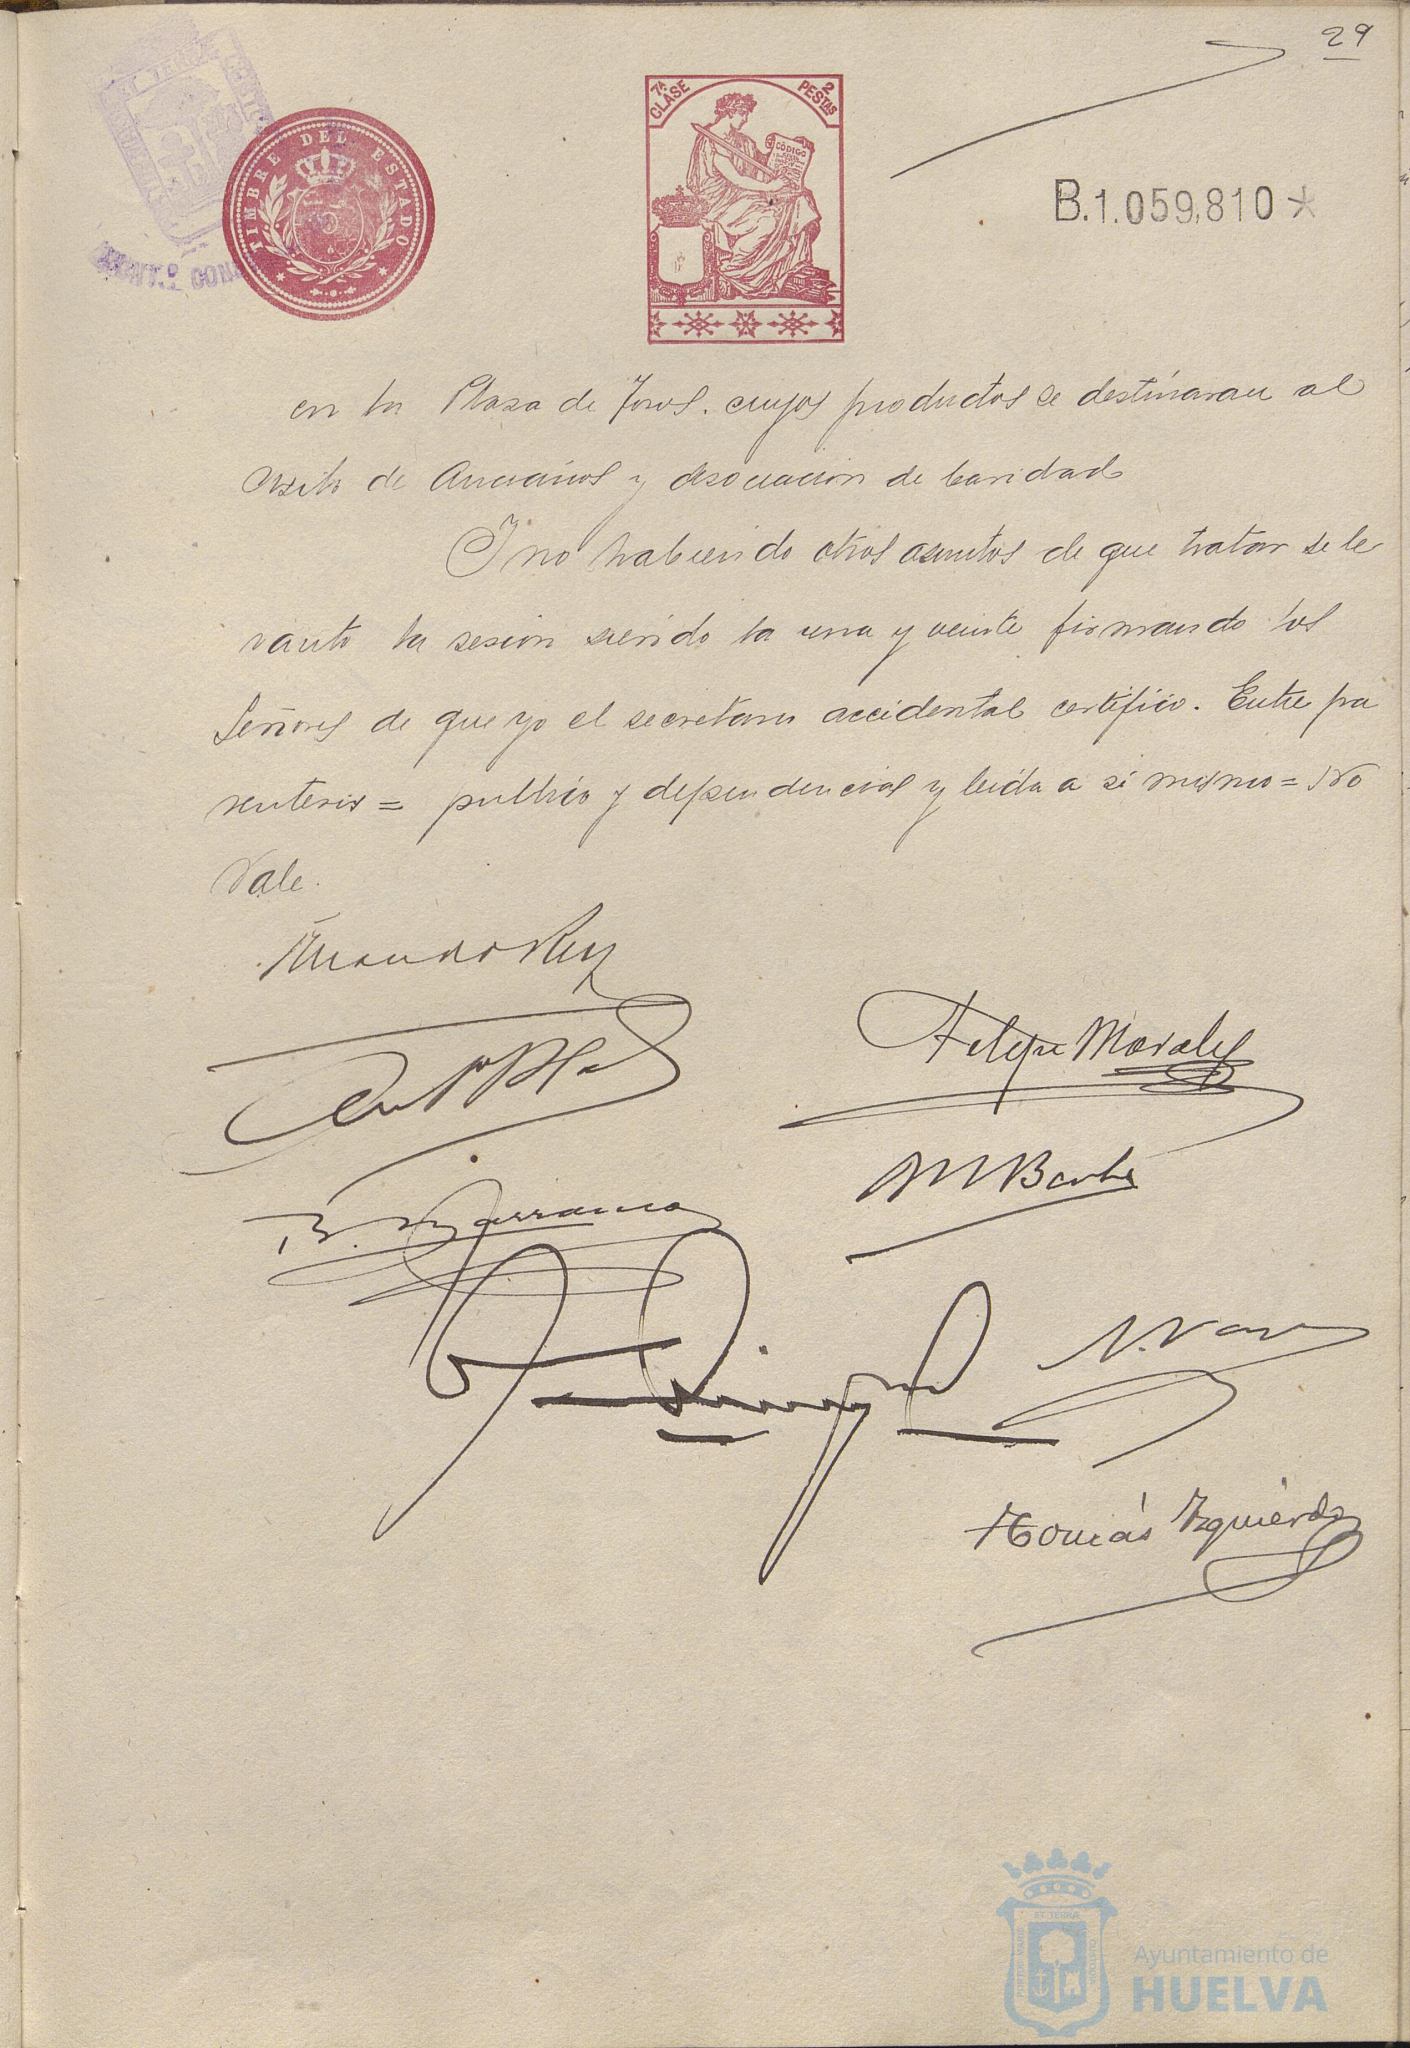 29
TIMBRE DEL ESTADO
7ª CLASE
2 PESTAS
CÓDIGO
B.1.059,810*
en la Plaza de Toros. cuyos productos se destinaran al
Asilo de Ancianos y Asociacion de Caridad
Y no habiendo otros asuntos de que tratar se le
vanto la sesion siendo la una y veinte firmando los
Señores de que yo el secretario accidental certifico. Entre pa
rentesis = publico y dependencias y leida a si mismo = No
Vale.
Felipe Morales
B. Barranco
N. Vazq
Tomás Izquierdo
Ayuntamiento de
HUELVA